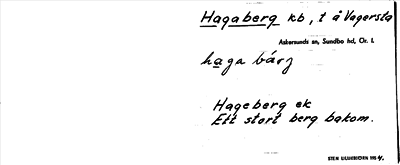 Hagaberg kb, t å Vagersta
Askersunds sn, Sundbo hd, Ör. l.
haga bárj
Hageberg ek
Ett stort berg bakom.
STEN LILIEBJÖRN